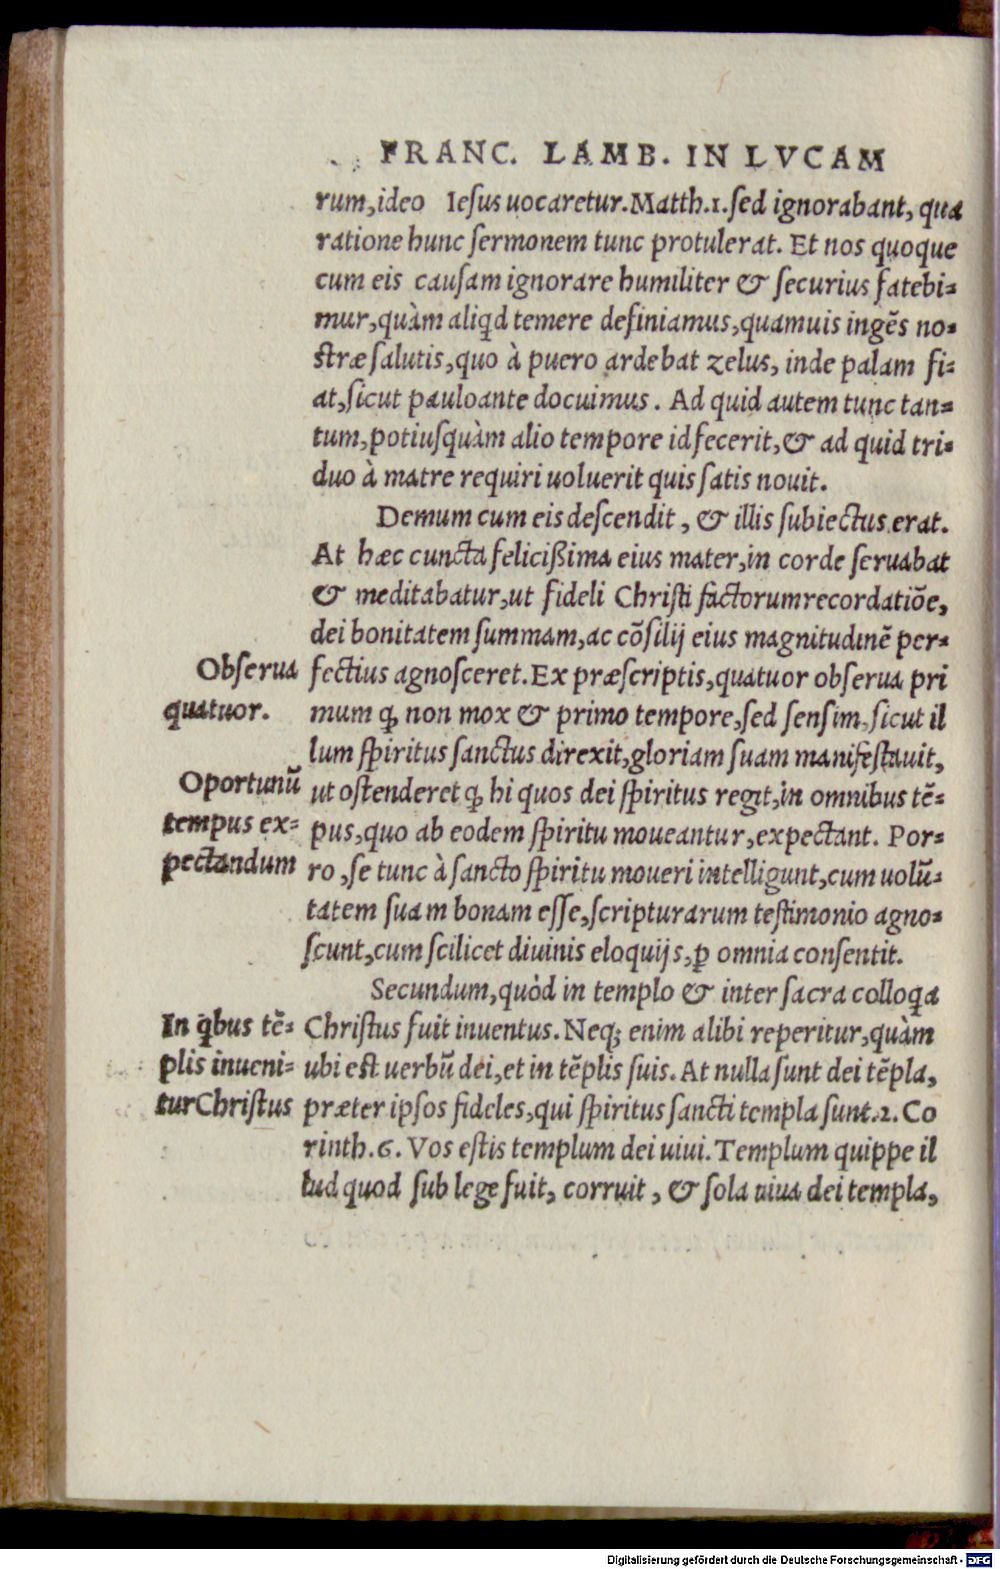 FRANC. LAMB. IN LVCAM
rum,ideo Iesus uocaretur.Matth.1.sed ignorabant, qua
ratione hunc sermonem tunc protulerat. Et nos quoque
cum eis causam ignorare humiliter & securius fatebi=
mur,quàm aliqd temere definiamus,quamuis ingẽs no=
stræ salutis,quo à puero ardebat zelus, inde palam fi=
at,sicut pauloante docuimus. Ad quid autem tunc tan=
tum,potiusquàm alio tempore id fecerit,& ad quid tri=
duo à matre requiri uoluerit quis satis nouit.
Demum cum eis descendit, & illis subiectus erat.
At hæc cuncta felicißima eius mater,in corde seruabat
& meditabatur,ut fideli Christi factorum recordatiõe,
dei bonitatem summam,ac cõsilij eius magnitudinẽ per=
Obserua
quatuor.
fectius agnosceret. Ex præscriptis,quatuor obserua pri
mum ꝙ non mox & primo tempore,sed sensim,sicut il
lum spiritus sanctus direxit,gloriam suam manifestauit,
Oportunũ
tempus ex=
pectandum
ut ostenderet ꝙ hi quos dei spiritus regit,in omnibus tẽ=
pus,quo ab eodem spiritu moueantur,expectant. Por=
ro,se tunc à sancto spiritu moueri intelligunt,cum uolũ=
tatem suam bonam esse,scripturarum testimonio agno=
scunt,cum scilicet diuinis eloquijs,ꝑ omnia consentit.
Secundum,quòd in templo & inter sacra colloqa
In qbus tẽ=
plis inueni=
tur Christus
Christus fuit inuentus. Neq; enim alibi reperitur,quàm
ubi est uerbũ dei,et in tẽplis suis. At nulla sunt dei tẽpla,
præter ipsos fideles,qui spiritus sancti templa sunt.2. Co
rinth.6. Vos estis templum dei uiui. Templum quippe il
lud quod sub lege fuit, corruit, & sola uiua dei templa,
Digitalisierung gefördert durch die Deutsche Forschungsgemeinschaft - DFG